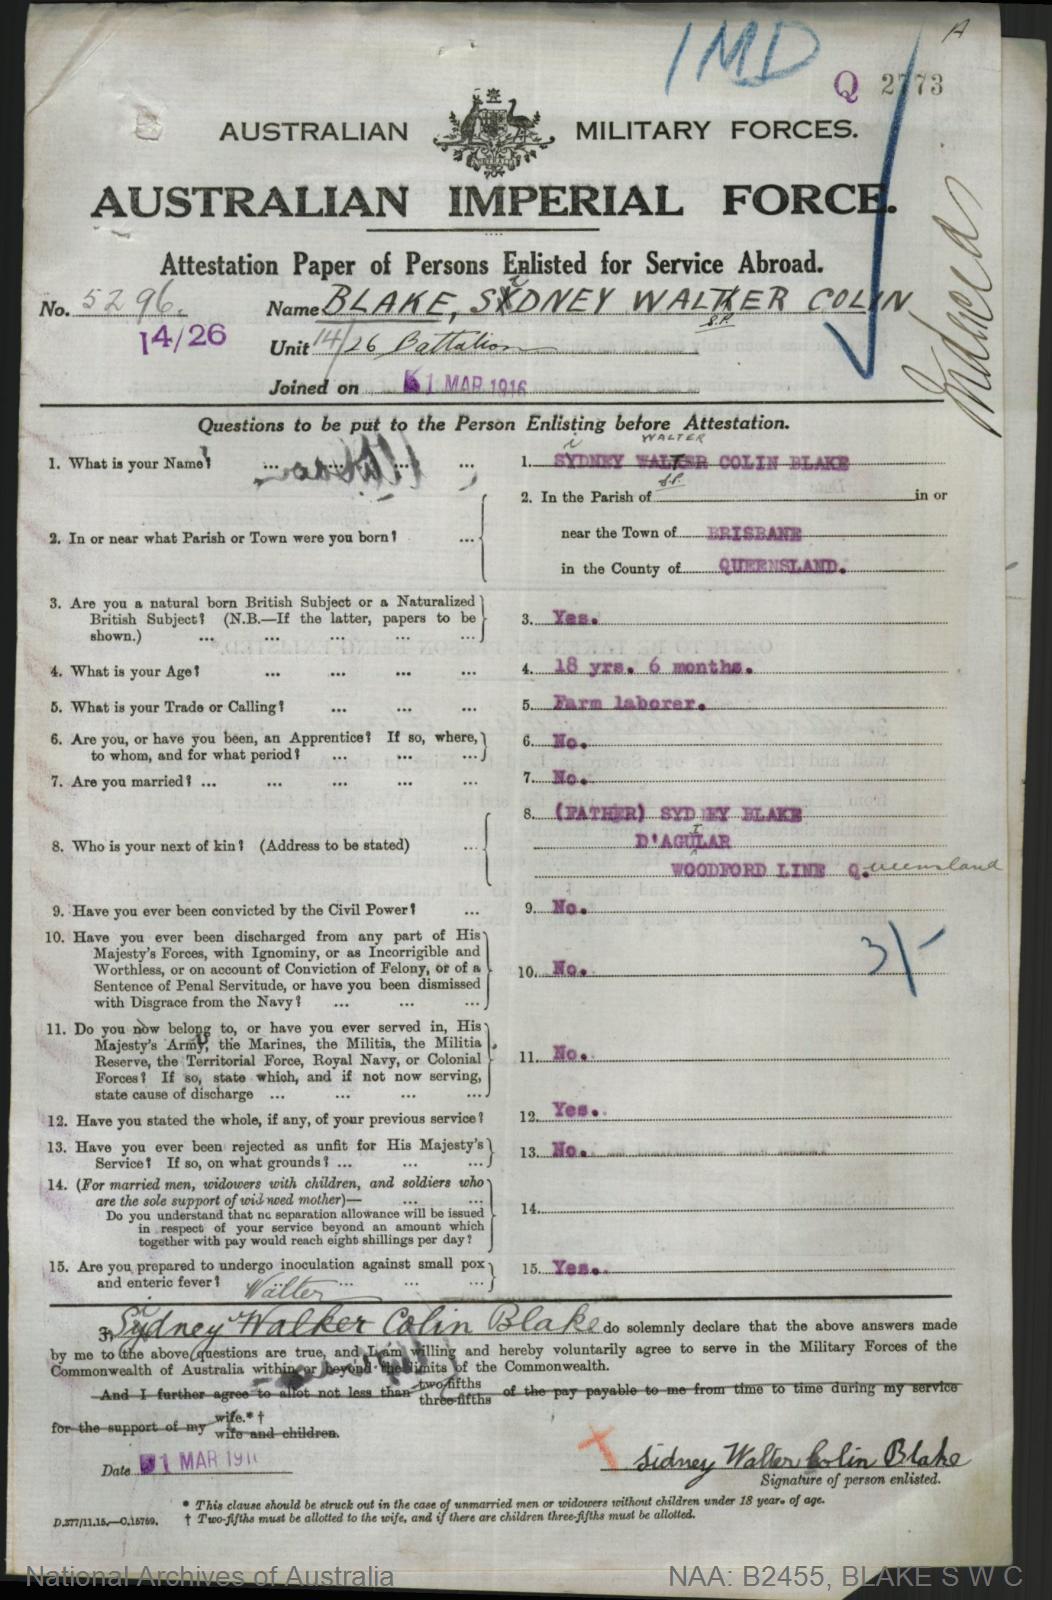 1MD
A
Q 2773
AUSTRALIAN MILITARY FORCES.
AUSTRALIAN IMPERIAL FORCE.
Attestation Paper of Persons Enlisted for Service Abroad.
No. 5296. Name BLAKE, SYDNEY WALTER COLIN
i
S.P.
14/26 Unit 14/26 Battalion
Joined on 1 MAR 1916
Indexed
Questions to be put to the Person Enlisting before Attestation.
i WALTER
1. What is your Name? ... ... ... ... 1. SYDNEY WALTER COLIN BLAKE
S.P.
2. In the Parish of in or
2. In or near what Parish or Town were you born? ... near the Town of BRISBANE
in the County of QUEENSLAND.
3. Are you a natural born British Subject or a Naturalized
British Subject? (N.B.—If the latter, papers to be 3. Yes.
shown.) ... ... ... ... ...
4. What is your Age? ... ... ... ... 4. 18 yrs. 6 months.
5. What is your Trade or Calling? ... ... ... 5. Farm laborer.
6. Are you, or have you been, an Apprentice? If so, where, 6. No.
to whom, and for what period? ... ... ...
7. Are you married? ... ... ... ... ... 7. No.
8. (FATHER) SYDNEY BLAKE
8. Who is your next of kin? (Address to be stated) ... D'AGUILAR
WOODFORD LINE Queensland
9. Have you ever been convicted by the Civil Power? ... 9. No.
10. Have you ever been discharged from any part of His
Majesty's Forces, with Ignominy, or as Incorrigible and
Worthless, or on account of Conviction of Felony, or of a 10. No.
Sentence of Penal Servitude, or have you been dismissed
with Disgrace from the Navy? ... ... ...
3/-
11. Do you now belong to, or have you ever served in, His
Majesty's Army, the Marines, the Militia, the Militia
Reserve, the Territorial Force, Royal Navy, or Colonial 11. No.
Forces? If so, state which, and if not now serving,
state cause of discharge ... ... ... ...
12. Have you stated the whole, if any, of your previous service? 12. Yes.
13. Have you ever been rejected as unfit for His Majesty's 13. No.
Service? If so, on what grounds? ... ... ...
14. (For married men, widowers with children, and soldiers who
are the sole support of widowed mother)— ... ...
Do you understand that no separation allowance will be issued 14.
in respect of your service beyond an amount which
together with pay would reach eight shillings per day?
15. Are you prepared to undergo inoculation against small pox 15. Yes.
and enteric fever? ... ... ...
Walter
i
I, Sydney Walker Colin Blake do solemnly declare that the above answers made
by me to the above questions are true, and I am willing and hereby voluntarily agree to serve in the Military Forces of the
Commonwealth of Australia within or beyond the limits of the Commonwealth.
And I further agree to allot not less than two-fifths three-fifths of the pay payable to me from time to time during my service
for the support of my wife.*† wife and children.
Date 1 MAR 191 Sidney Walter Colin Blake
Signature of person enlisted.
* This clause should be struck out in the case of unmarried men or widowers without children under 18 years of age.
D.277/11.15.—C.15759. † Two-fifths must be allotted to the wife, and if there are children three-fifths must be allotted.
National Archives of Australia NAA: B2455, BLAKE S W C